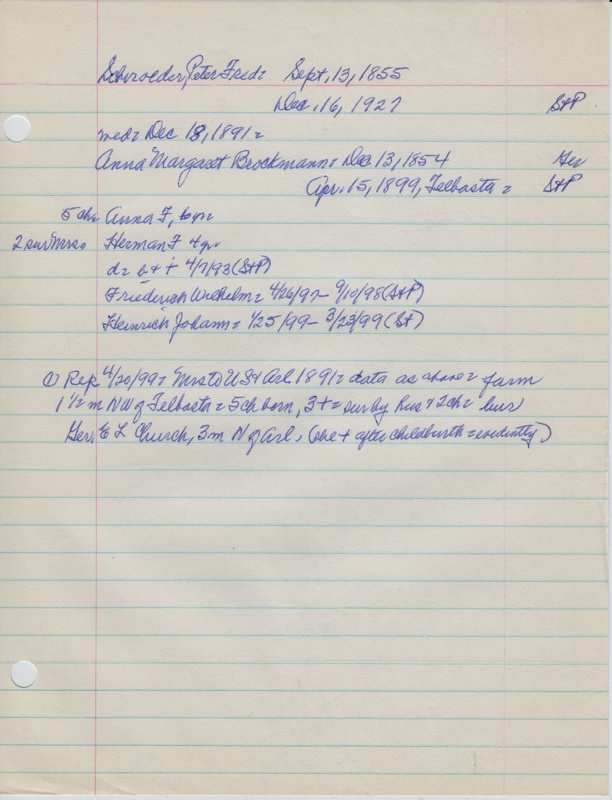 Schroeder, Peter Fred = Sept. 13, 1855
Dec. 16, 1927 StP
wed = Dec 18, 1891 =
Anna Margaret Brockmann = Dec. 13, 1854 Ger
Apr. 15, 1899, Telbasta = StP
5 ch = Anna F, 6 yr
2 sur Mrs Herman F 4 yr
d = b + † 4/7/93 (StP)
Friederich Wilhelm = 4/26/97 - 9/10/98 (StP)
Heinrich Johann = 1/25/99 - 3/23/99 (St)
① Rep 4/20/99 = Mrs to US & Arl 1891 = data as above = farm
1 1/2 m NW of Telbasta = 5 ch born, 3 † = sur by hus & 2 ch = bur
Ger. E L Church, 3 m N of Arl. (she † after childbirth = evidently)